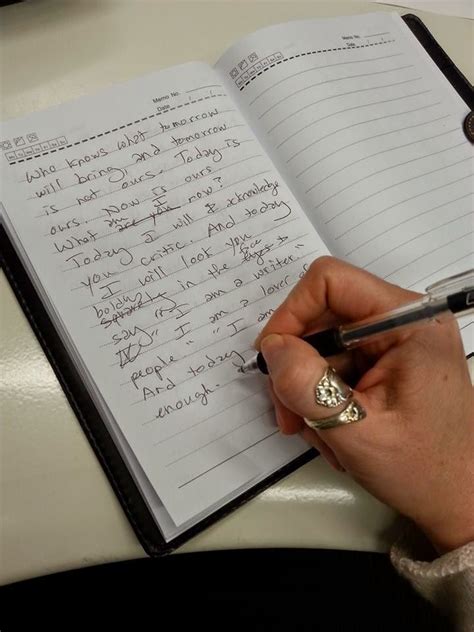 Memo No.
Date
Memo No.
Date
Who knows what tomorrow
will bring, and tomorrow
is not ours. Today is
ours. Now is ours.
What am are you now?
Today I will acknowledge
you critic. And today
I will look you
boldly in the face eyes to
say "I am a writer."
"I am a lover of
people" "I am
And today
enough.